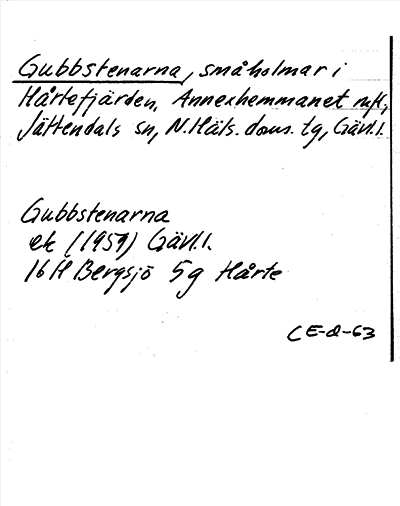 Gubbstenarna, småholmar i
Hårtefjärden, Annexhemmanet
Jättendals sn, N. Häls. doms. tg, Gävl.l.
Gubbstenarna
ek (1959) Gävl.l.
16 H Bergsjö 5g Hårte
CE-d-63